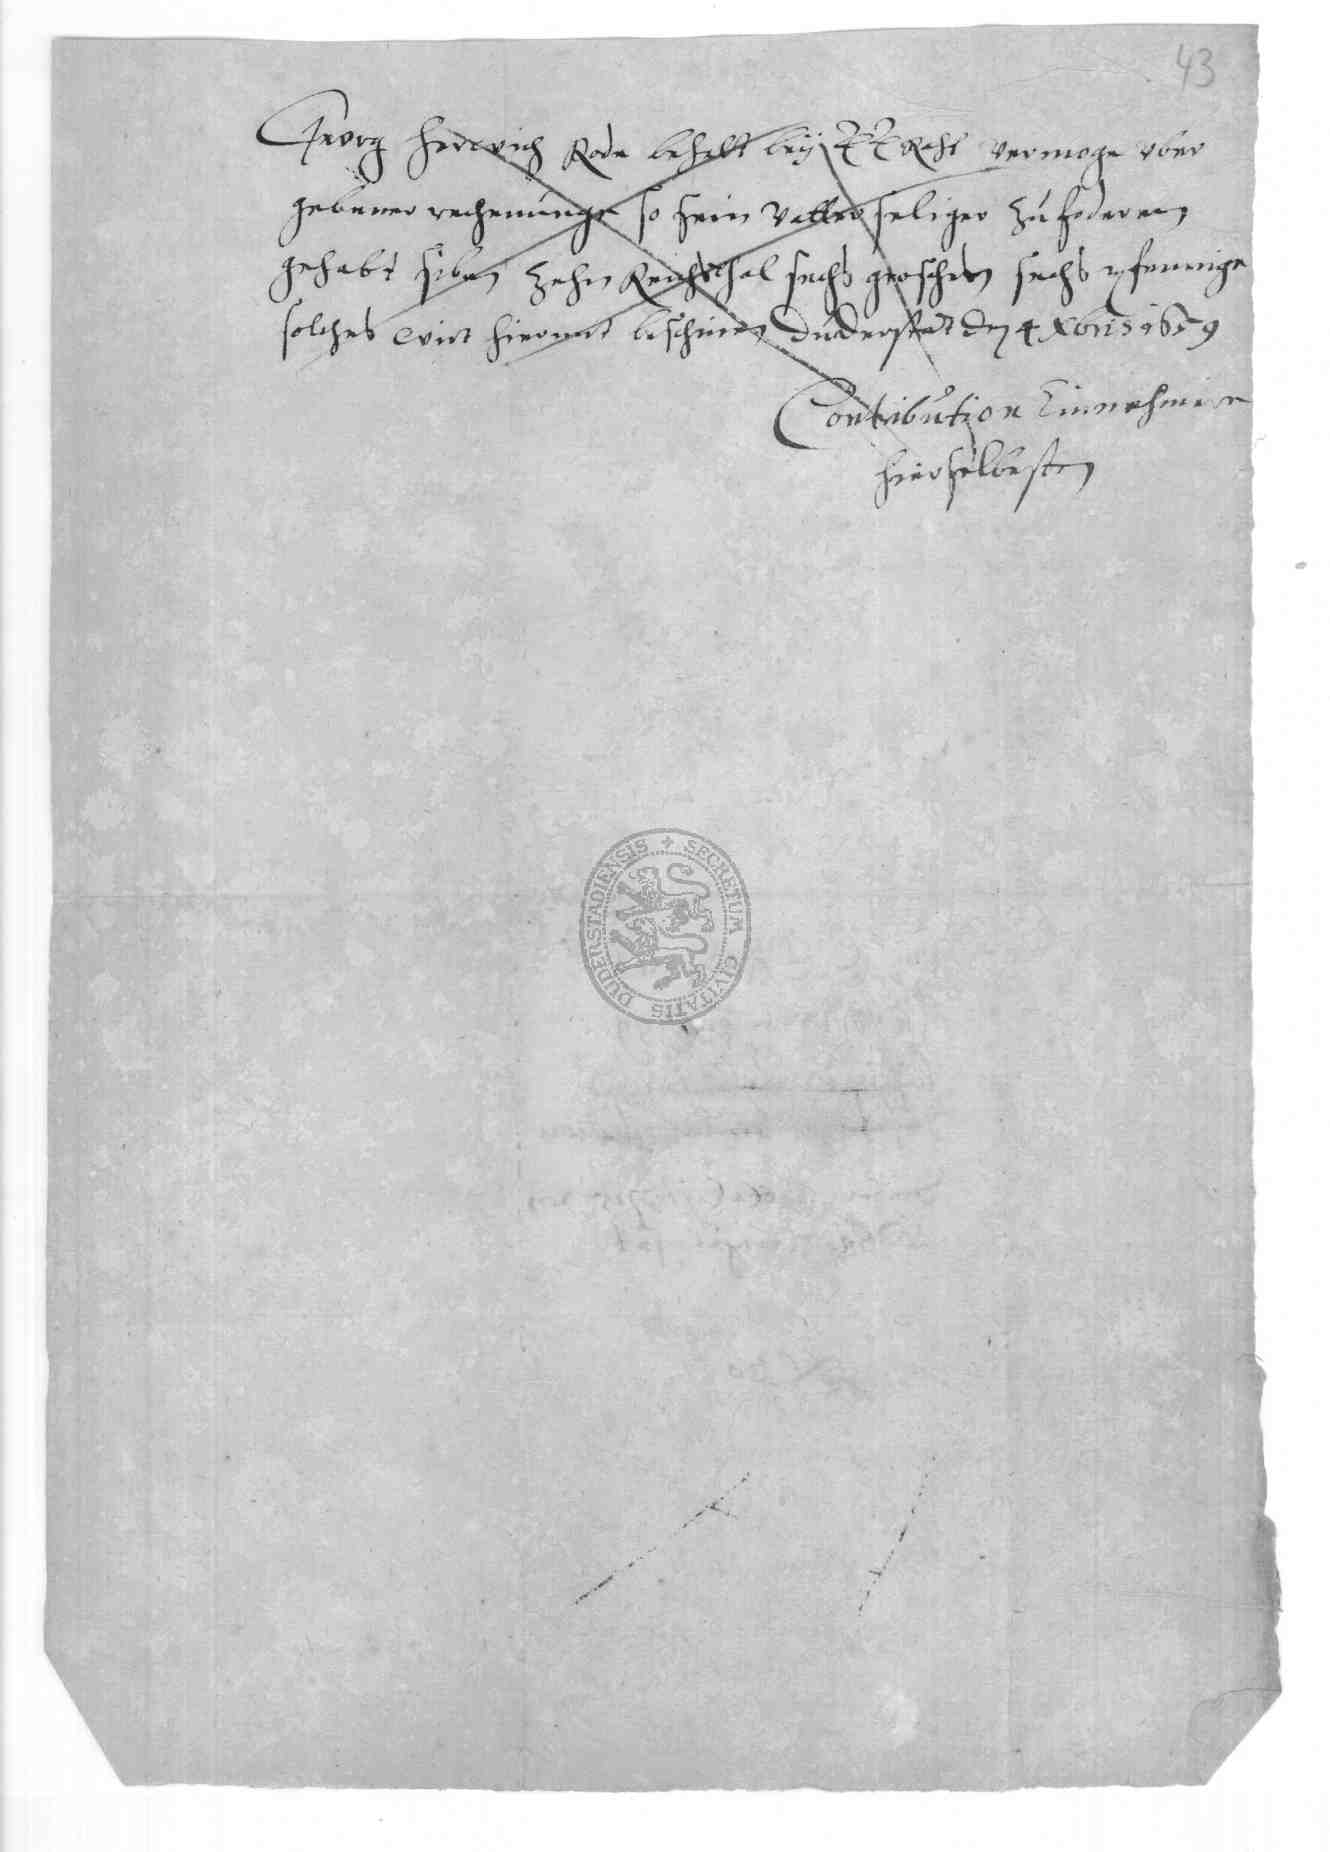 43
Georg Herwich Rode behelt beÿ EE Raht vermoge vber
gebener rechenunge so sein Vatter seliger zu foderen
gehabt siben zehn Reichsthal sechs groschen sechs pfennige
solches wirt hiermit beschinen Duderstat den 4 Xbris 1659
Contribution Einnehmere
hierselbesten
SECRETUM CIVITATIS DUDERSTADIENSIS